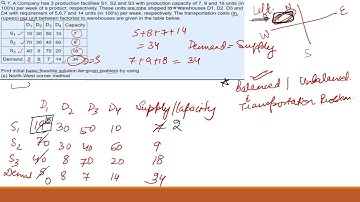 Q.1. A Company has 3 production facilities S1, S2 and S3 with production capacity of 7, 9 and 18 units (in
100's) per week of a product, respectively. These units are to be shipped to 4 warehouses D1, D2, D3 and
D4 with requirement of 5,6,7 and 14 units (in 100's) per week, respectively. The transportation costs (in
rupees) per unit between factories to warehouses are given in the table below.
D1 D2 D3 D4 Capacity
S1 19 30 50 10 7
S2 70 30 40 60 9
S3 40 8 70 20 18
Demand 5 8 7 14 34
Find initial basic feasible solution for given problem by using
(a) North-West corner method
5+8+7+14
= 34
Demand = Supply
7+9+18 = 34
D=S
Left
W
E
Balanced / Unbalanced
Transportation Problem
D1 D2 D3 D4 Supply/Capacity
S1 19 30 50 10 7 2
S2 70 30 40 60 9
S3 40 8 70 20 18
Demand 5 0 8 7 14 34